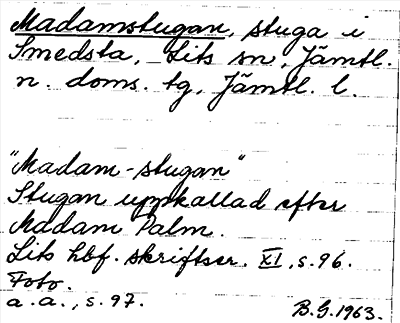 Madamstugan, stuga i
Smedsta, Lits sn, Jämtl.
n. doms. tg, Jämtl. l.
"Madam-stugan"
Stugan uppkallad efter
Madam Palm.
Lits hbf. skriftser. XI, s. 96.
Foto.
a.a., s. 97.
B.G. 1963.